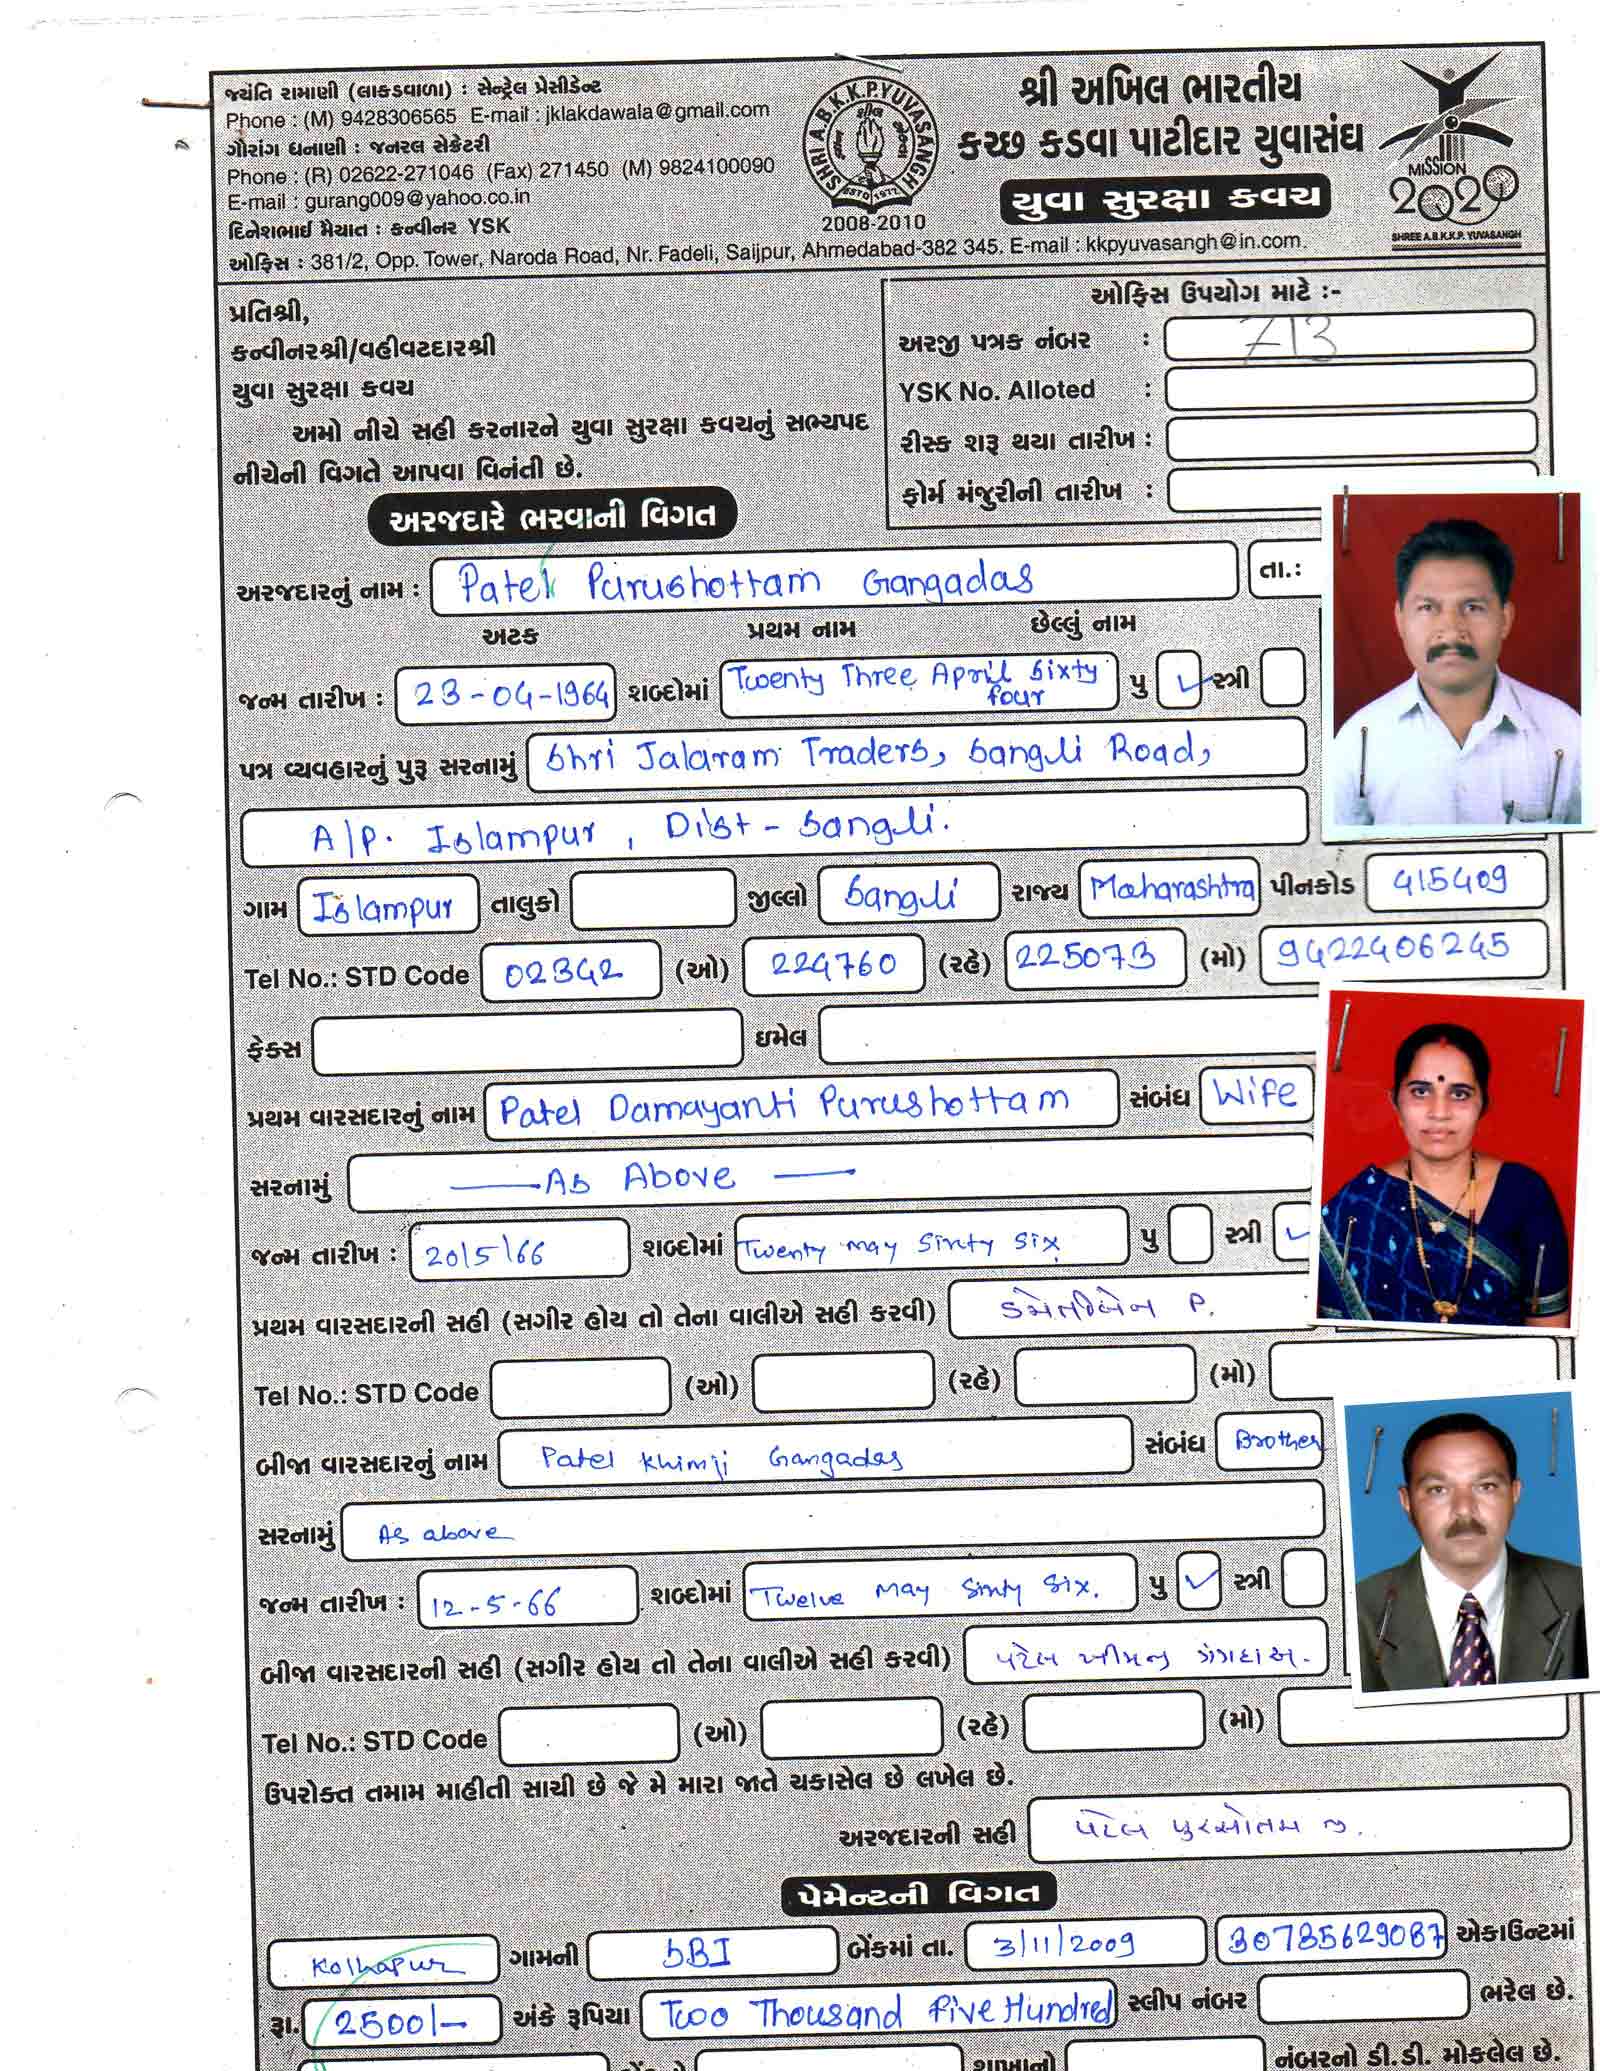 જયંતિ રામાણી (લાકડવાળા) : સેન્ટ્રલ પ્રેસીડેન્ટ
Phone : (M) 9428306565 E-mail : jklakdawala@gmail.com
ગૌરાંગ ધનાણી : જનરલ સેક્રેટરી
Phone : (R) 02622-271046 (Fax) 271450 (M) 9824100090
E-mail : gurang009@yahoo.co.in
દિનેશભાઈ મૈયાત : કન્વીનર YSK
ઓફિસ : 381/2, Opp. Tower, Naroda Road, Nr. Fadeli, Saijpur, Ahmedabad-382 345. E-mail : kkpyuvasangh@in.com.
SHRI A.B.K.K.P.YUVASANGH
ESTD 1977
2008-2010
શ્રી અખિલ ભારતીય
કચ્છ કડવા પાટીદાર યુવાસંઘ
યુવા સુરક્ષા કવચ
MISSION
2020
SHREE A.B.K.K.P. YUVASANGH
પ્રતિશ્રી,
કન્વીનરશ્રી/વહીવટદારશ્રી
યુવા સુરક્ષા કવચ
અમો નીચે સહી કરનારને યુવા સુરક્ષા કવચનું સભ્યપદ
નીચેની વિગતે આપવા વિનંતી છે.
ઓફિસ ઉપયોગ માટે :-
અરજી પત્રક નંબર : 713
YSK No. Alloted :
રીસ્ક શરૂ થયા તારીખ :
ફોર્મ મંજુરીની તારીખ :
અરજદારે ભરવાની વિગત
અરજદારનું નામ : Patel Purushottam Gangadas તા.:
અટક પ્રથમ નામ છેલ્લું નામ
જન્મ તારીખ : 23-04-1964 શબ્દોમાં Twenty Three April Sixty four પુ ✓ સ્ત્રી
પત્ર વ્યવહારનું પુરૂ સરનામું Shri Jalaram Traders, Sangli Road,
A/P. Islampur, Dist - Sangli.
ગામ Islampur તાલુકો જીલ્લો Sangli રાજ્ય Maharashtra પીનકોડ 415409
Tel No.: STD Code 02342 (ઓ) 224760 (રહે) 225073 (મો) 9422406245
ફેક્સ ઇમેલ
પ્રથમ વારસદારનું નામ Patel Damayanti Purushottam સંબંધ Wife
સરનામું — As Above —
જન્મ તારીખ : 20/5/66 શબ્દોમાં Twenty may Sixty Six પુ સ્ત્રી ✓
પ્રથમ વારસદારની સહી (સગીર હોય તો તેના વાલીએ સહી કરવી) P.
Tel No.: STD Code (ઓ) (રહે) (મો)
બીજા વારસદારનું નામ Patel Khimji Gangadas સંબંધ Brother
સરનામું As above
જન્મ તારીખ : 12-5-66 શબ્દોમાં Twelve May Sixty Six. પુ ✓ સ્ત્રી
બીજા વારસદારની સહી (સગીર હોય તો તેના વાલીએ સહી કરવી) પટેલ
Tel No.: STD Code (ઓ) (રહે) (મો)
ઉપરોક્ત તમામ માહીતી સાચી છે જે મે મારા જાતે ચકાસેલ છે લખેલ છે.
અરજદારની સહી પટેલ પુરસોતમ જી.
પેમેન્ટની વિગત
Kolhapur ગામની SBI બેંકમાં તા. 3/11/2009 30785629087 એકાઉન્ટમાં
રૂા. 2500/- અંકે રૂપિયા Two Thousand Five Hundred સ્લીપ નંબર ભરેલ છે.
નંબરનો ડી.ડી. મોકલેલ છે.